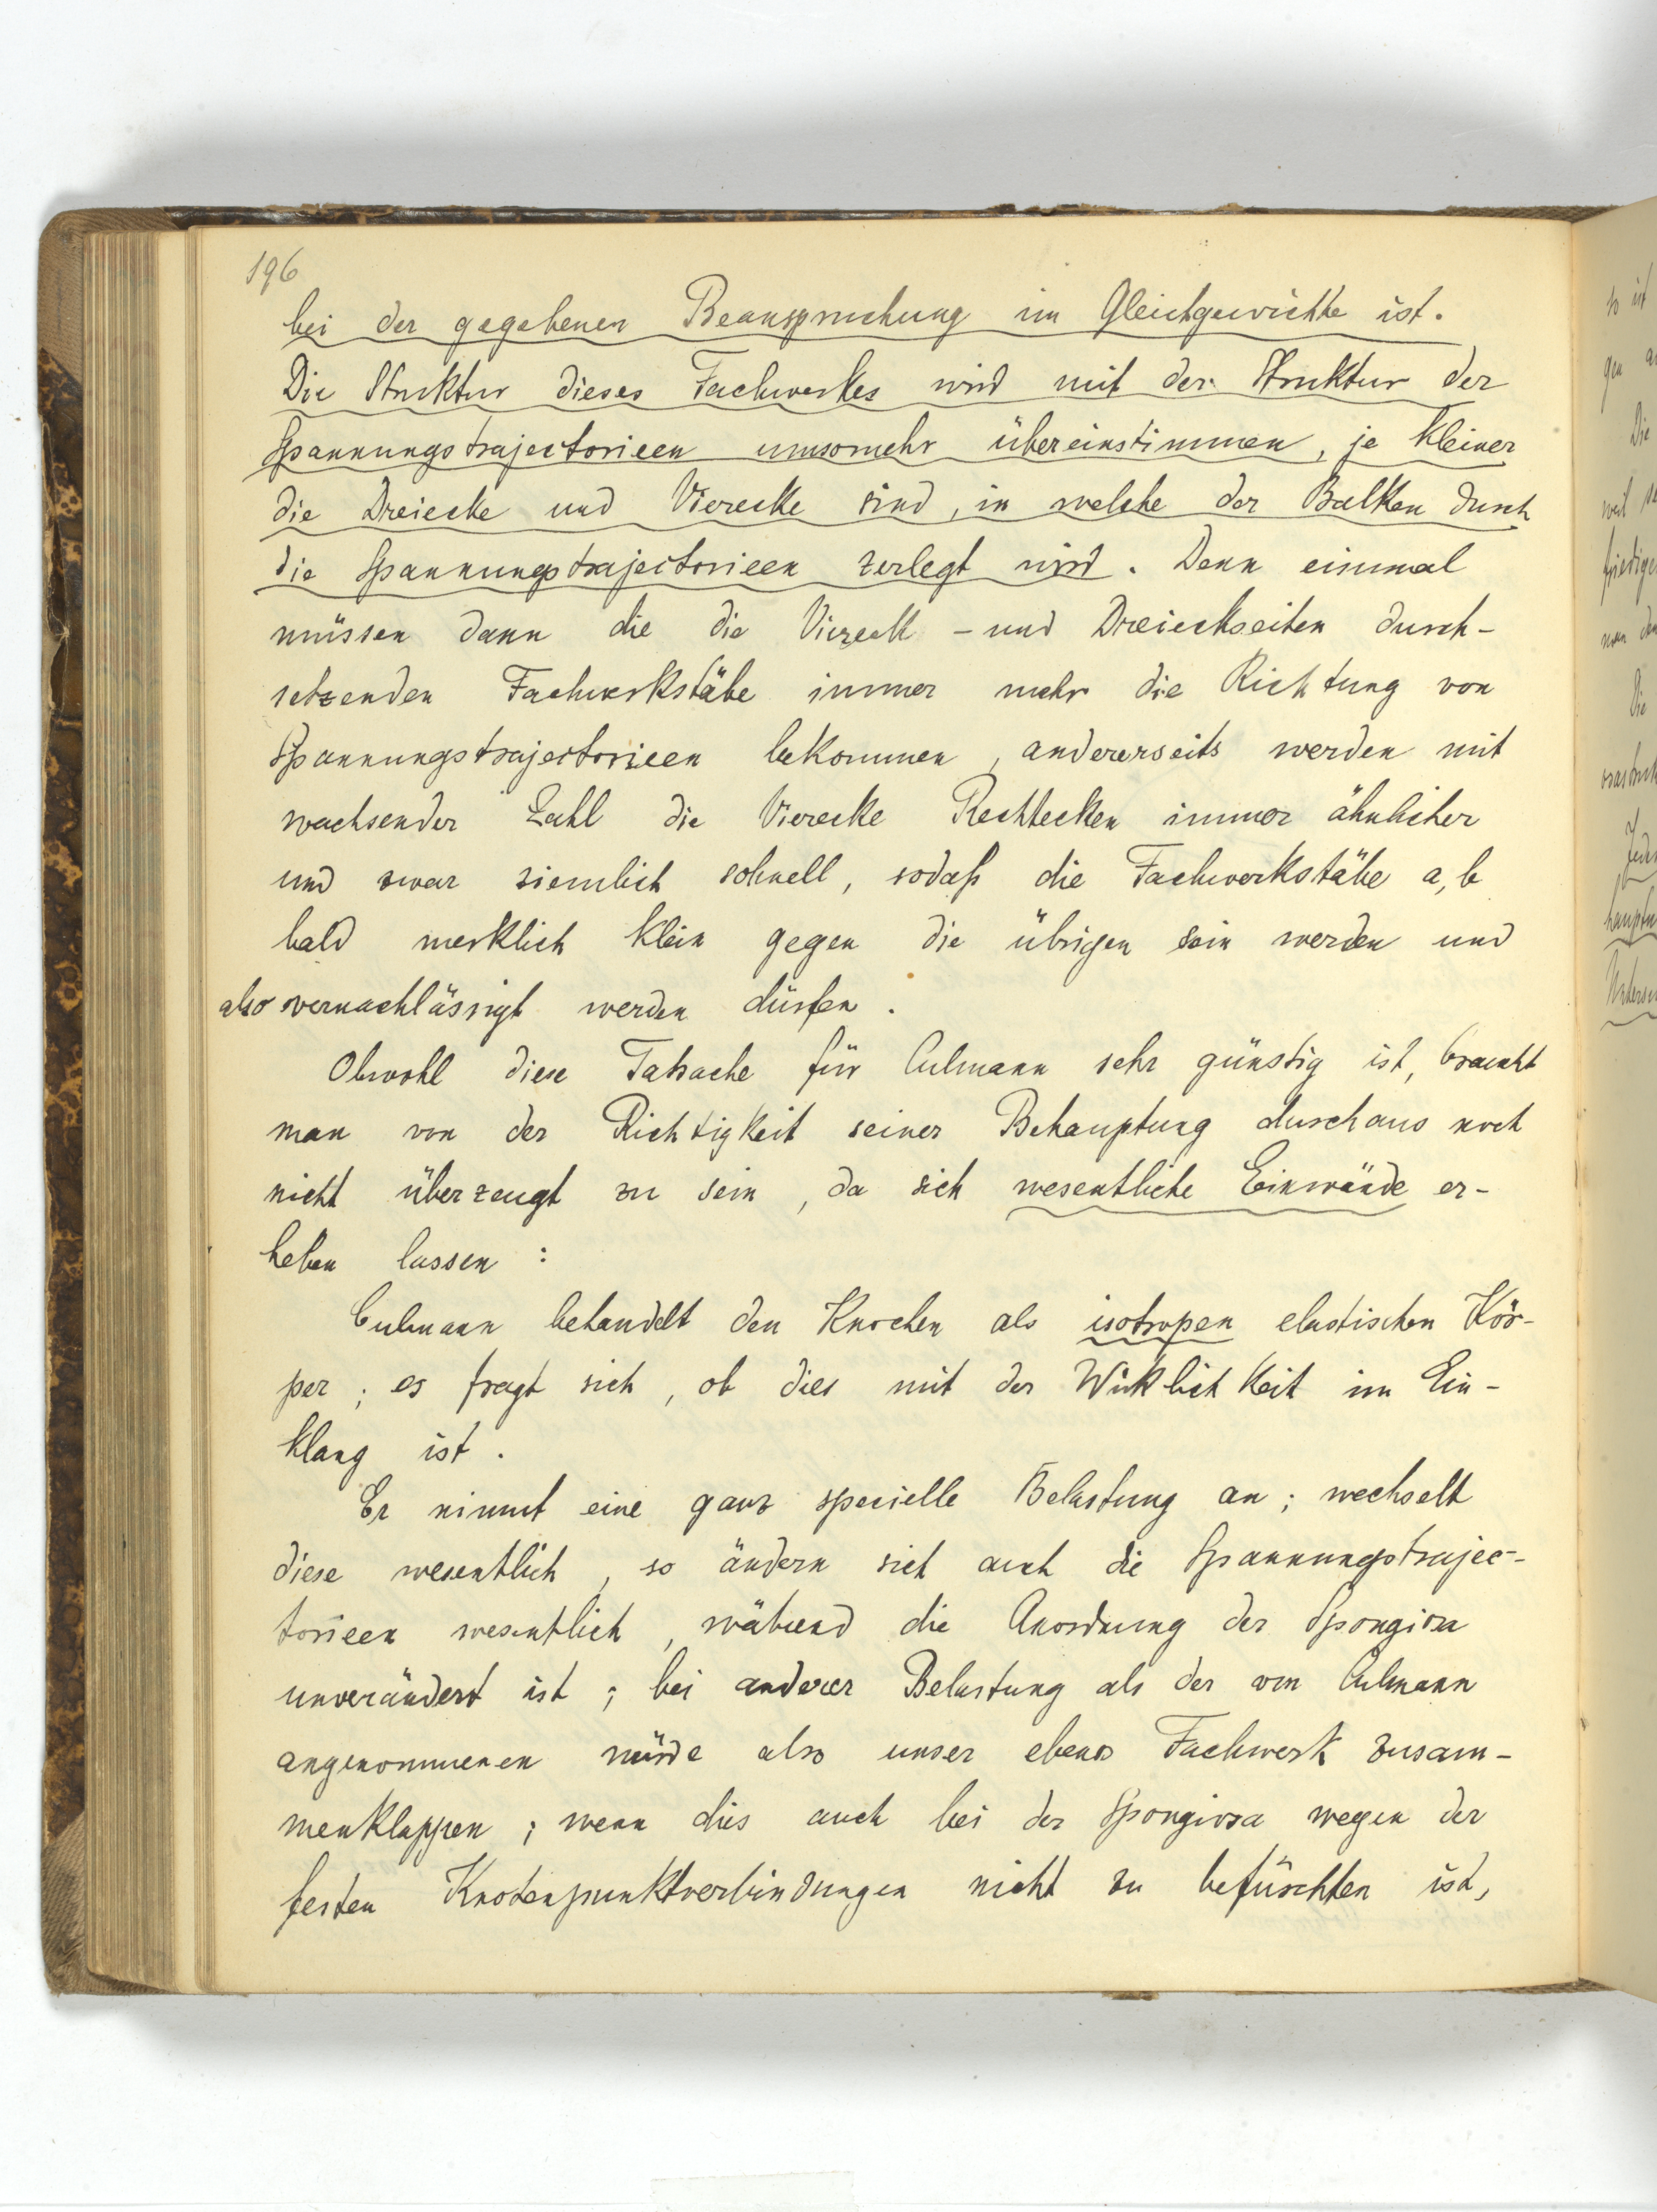 196
bei der gegebenen Beanspruchung im Gleichgewichte ist.
Die Struktur dieses Fachwerkes wird mit der Struktur der
Spannungstrajectorieen umsomehr übereinstimmen, je kleiner
die Dreiecke und Vierecke sind, in welche der Balken durch
die Spannungstrajectorieen zerlegt wird. Denn einmal
müssen dann die die Viereck- und Dreieckseiten durch-
setzenden Fachwerkstäbe immer mehr die Richtung von
Spannungstrajectorieen bekommen, andererseits werden mit
wachsender Zahl die Vierecke Rechtecken immer ähnlicher
und zwar ziemlich schnell, sodaß die Fachwerkstäbe a, b
bald merklich klein gegen die übrigen sein werden und
also vernachlässigt werden dürfen.
Obwohl diese Tatsache für Culmann sehr günstig ist, braucht
man von der Richtigkeit seiner Behauptung durchaus noch
nicht überzeugt zu sein, da sich wesentliche Einwände er-
heben lassen:
Culmann behandelt den Knochen als isotropen elastischen Kör-
per; es fragt sich, ob dies mit der Wirklichkeit im Ein-
klang ist.
Er nimmt eine ganz specielle Belastung an; wechselt
diese wesentlich, so ändern sich auch die Spannungstrajec-
torieen wesentlich, während die Anordnung der Spongiosa
unverändert ist; bei anderer Belastung als der von Culmann
angenommenen würde also unser ebenes Fachwerk zusam-
menklappen; wenn dies auch bei der Spongiosa wegen der
festen Knotenpunktverbindungen nicht zu befürchten ist,
so ist
Die
Die